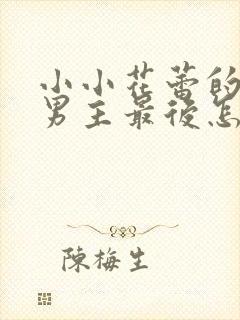 小小花蕾的
男主最后怎
陳梅生